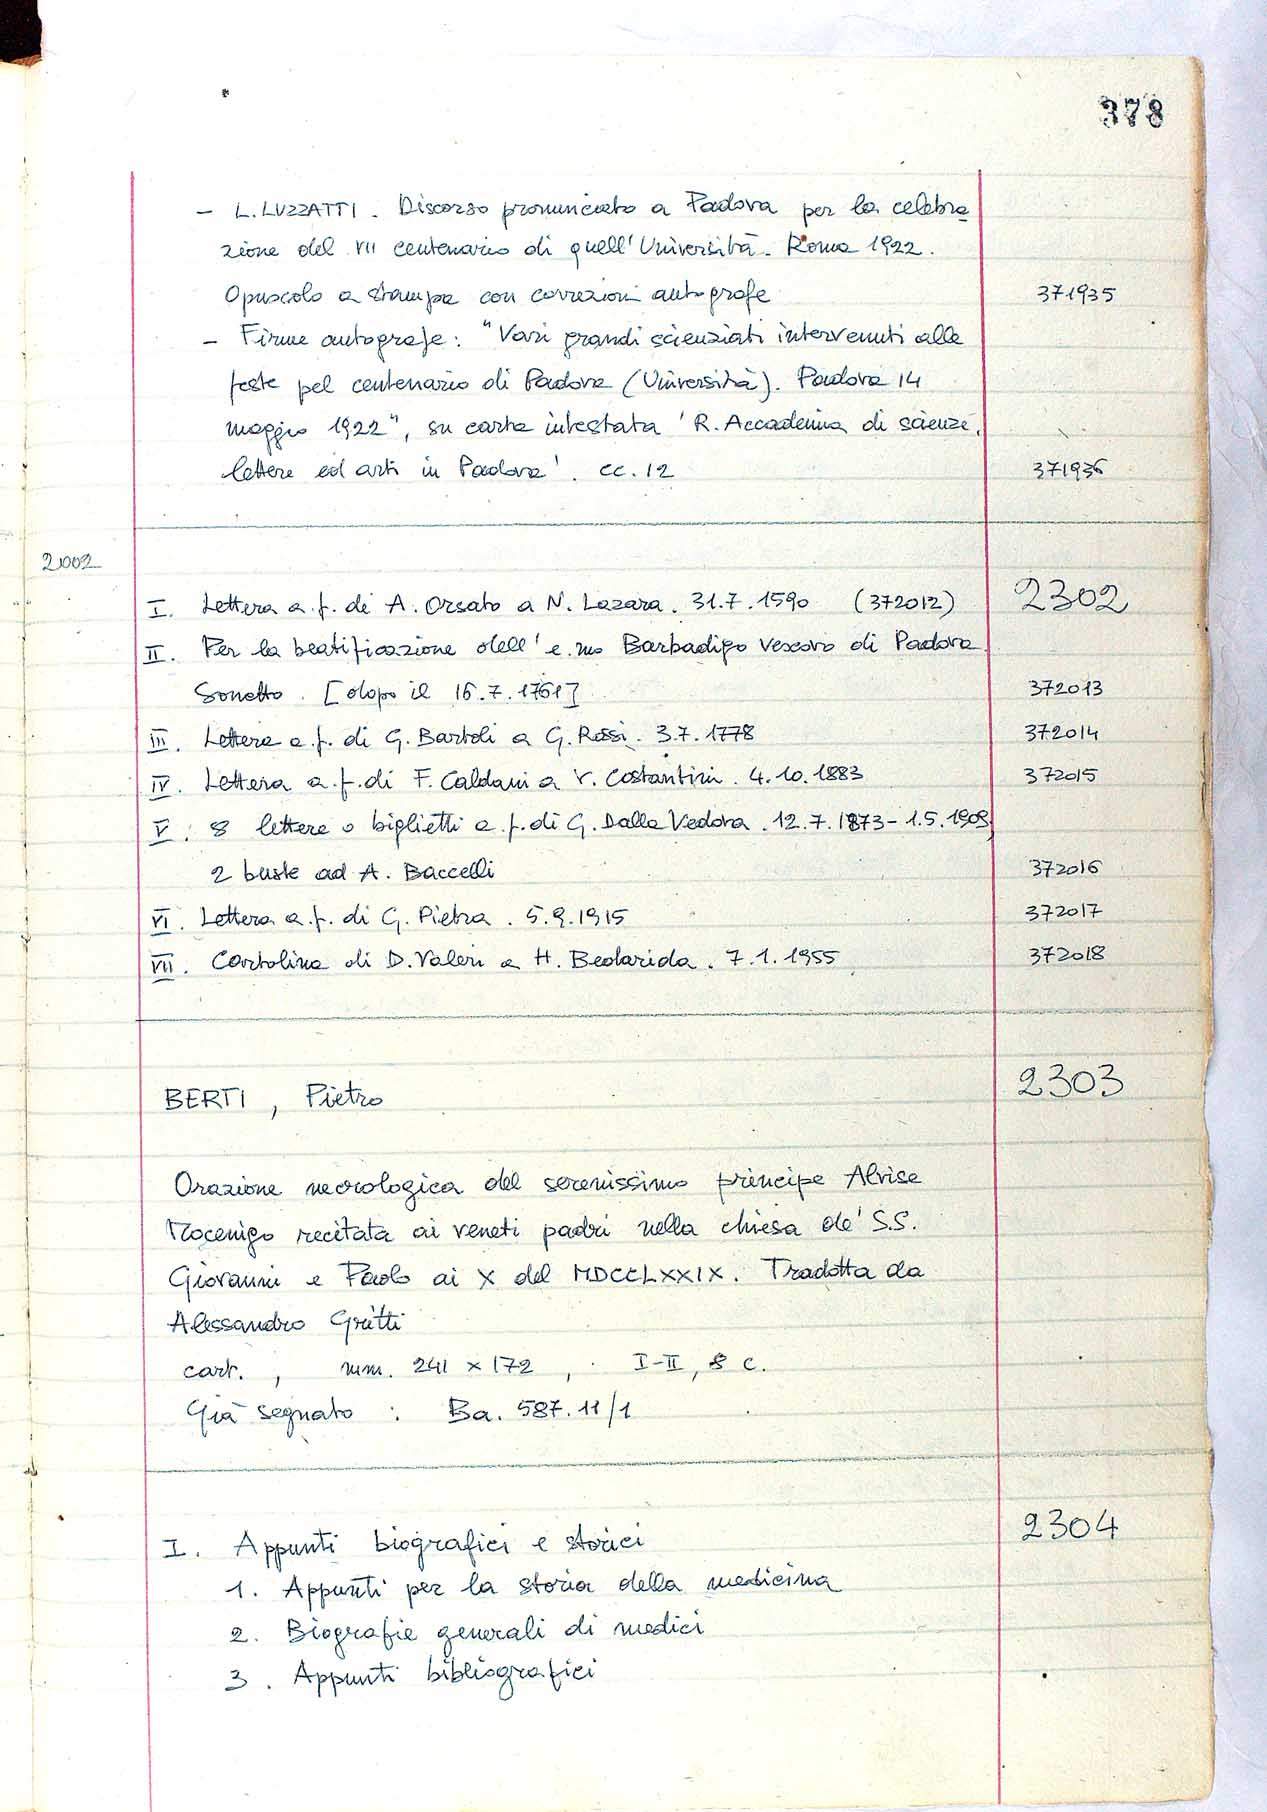 378
- L. LUZZATTI. Discorso pronunciato a Padova per la celebra
zione del VII centenario di quell'Università. Roma 1922.
Opuscolo a stampa con correzioni autografe 371935
- Firme autografe: "Vari grandi scienziati intervenuti alle
feste pel centenario di Padova (Università). Padova 14
maggio 1922", su carta intestata 'R. Accademia di scienze,
lettere ed arti in Padova'. cc. 12 371936
2002
I. Lettera a.f. di A. Orsato a N. Lazara. 31.7.1590 (372012) 2302
II. Per la beatificazione dell'e.mo Barbadigo vescovo di Padova.
Sonetto. [dopo il 16.7.1761] 372013
III. Lettera a.f. di G. Bartoli a G. Rossi. 3.7.1778 372014
IV. Lettera a.f. di F. Caldani a V. Costantini. 4.10.1883 372015
V. 8 lettere o biglietti a.f. di G. Dalla Vedova. 12.7.1873-1.5.1909,
2 buste ad A. Baccelli 372016
VI. Lettera a.f. di G. Pietra. 5.9.1915 372017
VII. Cartolina di D. Valeri a H. Bedarida. 7.1.1955 372018
BERTI, Pietro 2303
Orazione necrologica del serenissimo principe Alvise
Mocenigo recitata ai veneti padri nella chiesa de' S.S.
Giovanni e Paolo ai X del MDCCLXXIX. Tradotta da
Alessandro Gritti
cart., mm. 241 x 172, I-II, 8 c.
Già segnato: Ba. 587.11/1
I. Appunti biografici e storici 2304
1. Appunti per la storia della medicina
2. Biografie generali di medici
3. Appunti bibliografici